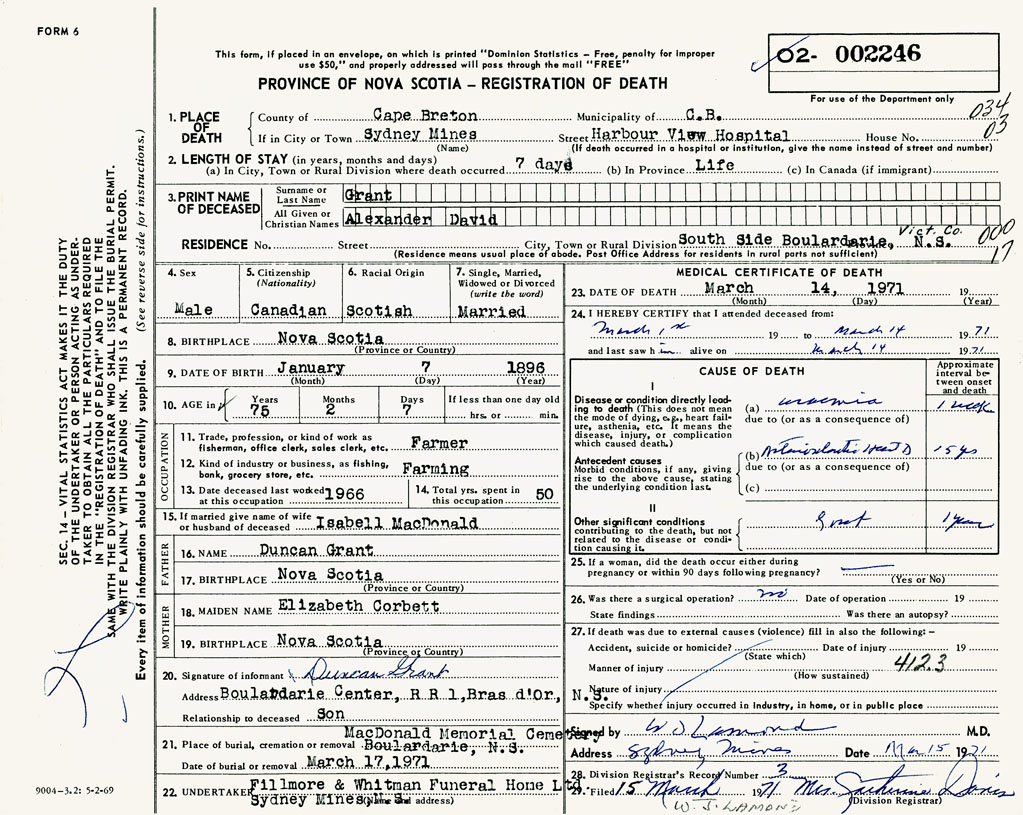 FORM 6
This form, if placed in an envelope, on which is printed "Dominion Statistics – Free, penalty for improper
use $50," and properly addressed will pass through the mail "FREE"
02- 002246
PROVINCE OF NOVA SCOTIA – REGISTRATION OF DEATH
For use of the Department only
034
03
1. PLACE OF DEATH
County of Cape Breton Municipality of C.B.
If in City or Town Sydney Mines Street Harbour View Hospital House No.
(Name) (If death occurred in a hospital or institution, give the name instead of street and number)
2. LENGTH OF STAY (in years, months and days)
(a) In City, Town or Rural Division where death occurred 7 days (b) In Province Life (c) In Canada (if immigrant)
3. PRINT NAME OF DECEASED
Surname or Last Name Grant
All Given or Christian Names Alexander David
RESIDENCE No. Street City, Town or Rural Division South Side Boulardarie, Vict. Co. N.S. 000
17
(Residence means usual place of abode. Post Office Address for residents in rural parts not sufficient)
4. Sex
Male
5. Citizenship
(Nationality)
Canadian
6. Racial Origin
Scotish
7. Single, Married,
Widowed or Divorced
(write the word)
Married
8. BIRTHPLACE Nova Scotia
(Province or Country)
9. DATE OF BIRTH January 7 1896
(Month) (Day) (Year)
10. AGE in Years Months Days If less than one day old
75 2 7 hrs. or min.
OCCUPATION
11. Trade, profession, or kind of work as
fisherman, office clerk, sales clerk, etc. Farmer
12. Kind of industry or business, as fishing,
bank, grocery store, etc. Farming
13. Date deceased last worked at this occupation 1966
14. Total yrs. spent in this occupation 50
15. If married give name of wife
or husband of deceased Isabell MacDonald
FATHER
16. NAME Duncan Grant
17. BIRTHPLACE Nova Scotia
(Province or Country)
MOTHER
18. MAIDEN NAME Elizabeth Corbett
19. BIRTHPLACE Nova Scotia
(Province or Country)
20. Signature of informant Duncan Grant
Address Boulardarie Center, R R 1, Bras d'Or, N.S.
Relationship to deceased Son
MacDonald Memorial Cemetery
21. Place of burial, cremation or removal Boulardarie, N.S.
Date of burial or removal March 17, 1971
22. UNDERTAKER Fillmore & Whitman Funeral Home Ltd.
Sydney Mines
(Name and address)
MEDICAL CERTIFICATE OF DEATH
23. DATE OF DEATH March 14, 1971 19
(Month) (Day) (Year)
24. I HEREBY CERTIFY that I attended deceased from:
March 1st 19 to March 14 1971
and last saw him alive on March 14 1971
CAUSE OF DEATH
Approximate interval between onset and death
I
Disease or condition directly leading to death (This does not mean the mode of dying, e.g., heart failure, asthenia, etc. It means the disease, injury, or complication which caused death.)
(a) uraemia 1 week
due to (or as a consequence of)
Antecedent causes
Morbid conditions, if any, giving rise to the above cause, stating the underlying condition last.
(b) Arteriosclerotic Heart D 15 yrs
due to (or as a consequence of)
(c)
II
Other significant conditions contributing to the death, but not related to the disease or condition causing it.
Gout 1 year
25. If a woman, did the death occur either during
pregnancy or within 90 days following pregnancy?
(Yes or No)
26. Was there a surgical operation? no Date of operation 19
State findings Was there an autopsy?
27. If death was due to external causes (violence) fill in also the following: –
Accident, suicide or homicide? Date of injury 19
(State which)
Manner of injury 412.3
(How sustained)
Nature of injury
Specify whether injury occurred in industry, in home, or in public place
Signed by W J Lamond M.D.
Address Sydney Mines Date Mar 15 1971
28. Division Registrar's Record Number 3
29. Filed 15 March 1971 Mrs. Catherine Davis
(Division Registrar)
W. J. LAMOND
9004-3.2: 5-2-69
SEC. 14 – VITAL STATISTICS ACT MAKES IT THE DUTY
OF THE UNDERTAKER OR PERSON ACTING AS UNDER-
TAKER TO OBTAIN ALL THE PARTICULARS REQUIRED
IN THE "REGISTRATION OF DEATH" AND TO FILE THE
SAME WITH THE DIVISION REGISTRAR WHO SHALL ISSUE THE BURIAL PERMIT.
WRITE PLAINLY WITH UNFADING INK. THIS IS A PERMANENT RECORD.
Every item of information should be carefully supplied. (See reverse side for instructions.)